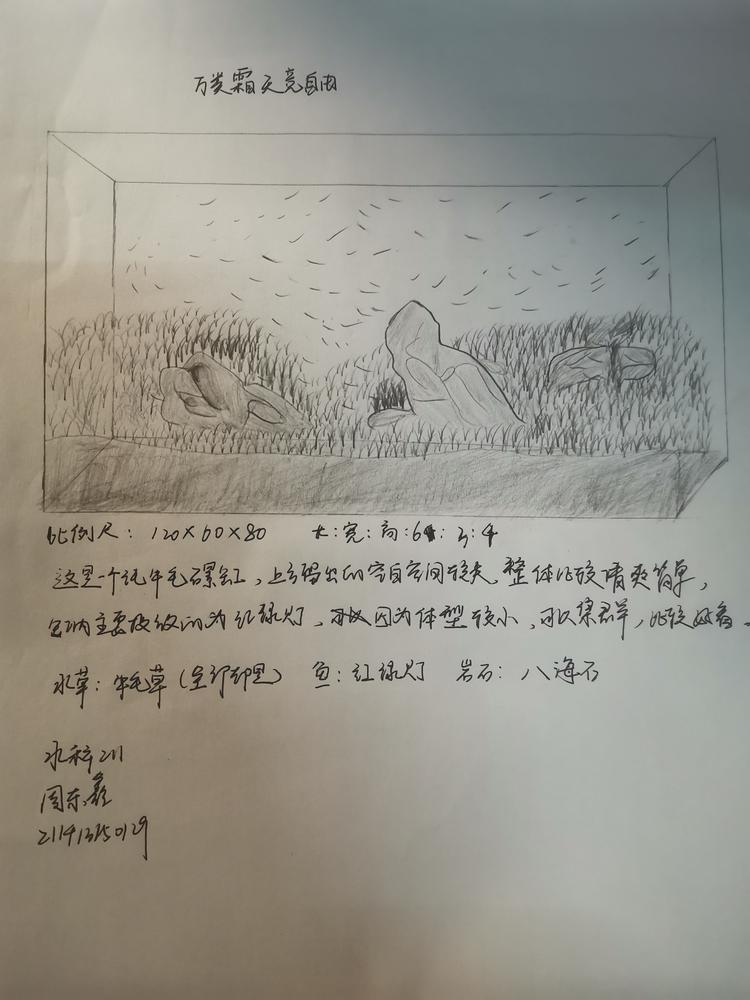 万类霜天竞自由
比例尺：120×60×80 长：宽：高：6：3：4
这是一个纯牛毛石景缸，上方留出的空白空间较大，整体比较清爽简单，
缸内主要放饲的为红绿灯，因为体型较小，可以集群，比较好看。
水草：牛毛草（全部都是） 鱼：红绿灯 岩石：八海石
水科211
周东